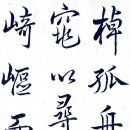 棹孤舟
窕以尋
崎嶇而